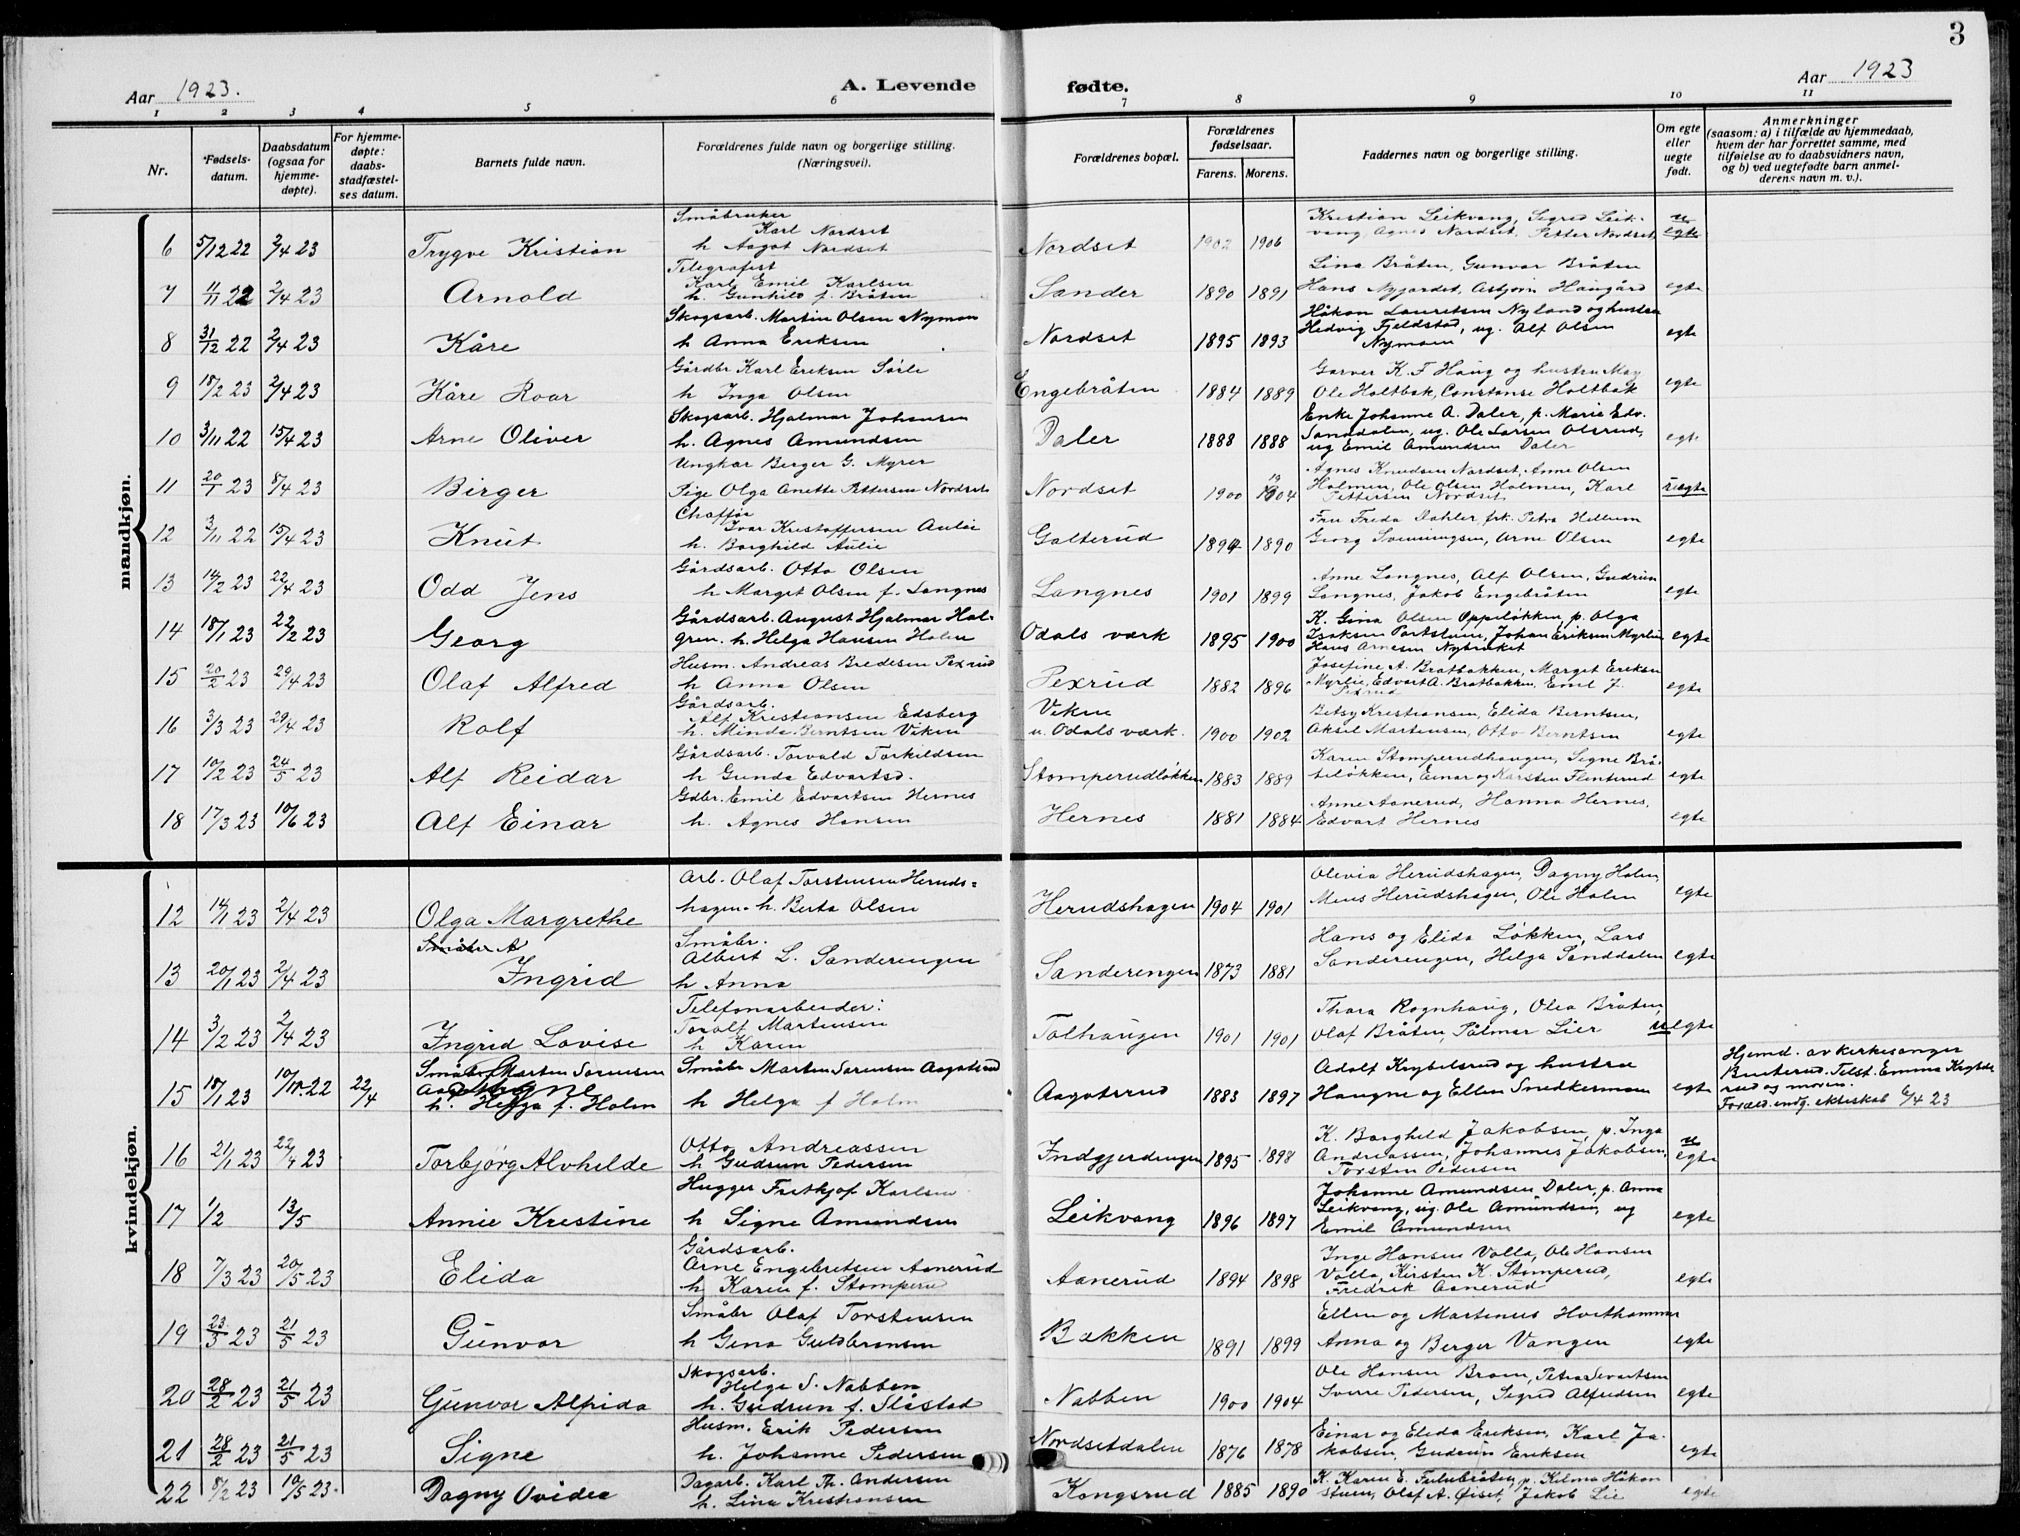 3
Aar 1923.
A. Levende fødte.
Aar 1923
1 2 3 4 5 6 7 8 9 10 11
Nr.
Fødsels-
datum.
Daabsdatum
(ogsaa for
hjemme-
døpte).
For hjemme-
døpte:
daabs-
stadfæstel-
ses datum.
Barnets fulde navn.
Forældrenes fulde navn og borgerlige stilling.
(Næringsvei).
Forældrenes bopæl.
Forældrenes
fødselsaar.
Farens. Morens.
Faddernes navn og borgerlige stilling.
Om egte
eller
uegte
født.
Anmerkninger
(saasom: a) i tilfælde av hjemmedaab,
hvem der har forrettet samme, med
tilføielse av to daabsvidners navn,
og b) ved uegtefødte barn anmel-
derens navn m. v.).
mandkjøn.
6 5/12 22 2/4 23 Trygve Kristian
Småbruker
Karl Nordset
h Aagot Nordset
Nordset 1902 1906
Kristian Leikvang, Sigrid Leik-
vang, Agnes Nordset, Petter Nordset,
u
egte
7 11/11 22 2/4 23 Arnold
Telegrafist
Karl Emil Karlsen
h. Gunhild f. Bråten
Sander 1890 1891
Lina Bråten, Gunvor Bråten
Hans Nygardet, Asbjørn Haugård
egte
8 31/12 22 2/4 23 Kåre
Skogsarb. Martin Olsen Nyman
h Anna Eriksen
Nordset 1895 1893
Håkon Lauritsen Nyland og hustru
Hedvig Fjeldstad, ug. Alf Olsen
Nymoen
egte
9 18/2 23 2/4 23 Kåre Roar
Gårdbr Karl Eriksen Sørli
h Inga Olsen
Engebråten 1884 1889
Garver K. F Haug og hustru May
Ole Holtbak, Constanse Holtbak
egte
10 3/11 22 15/4 23 Arne Oliver
Skogsarb. Hjalmar Johansen
h. Agnes Amundsen
Daler 1888 1888
Enke Johanne A. Daler, p. Marie Edv.
Sanddalen, ug. Ole Larsen Olsrud,
ug Emil Amundsen Daler
egte
11 20/1 23 8/4 23 Birger
Ungkar Berger G. Myrer
Pige Olga Anette Pettersen Nordset
Nordset 1900 1904
Agnes Knudsen Nordset, Anne Olsen
Holmen, Ole Olsen Holmen, Karl
Pettersen Nordset
uegte
12 3/11 22 15/4 23 Knut
Chaffør
Ivar Kristoffersen Aulie
h. Borghild Aulie
Galterud 1894 1890
Fru Freda Dahler, frk. Petra Hellum
Georg Svenningsen, Arne Olsen
egte
13 14/2 23 22/4 23 Odd Jens
Gårdsarb. Otto Olsen
h Marget Olsen f. Langnes
Langnes 1901 1899
Anne Langnes, Alf Olsen, Gudrun
Langnes, Jakob Engebråten
egte
14 18/1 23 22/2 23 Georg
Gårdsarb. August Hjalmar Hol-
gren. h. Helga Hansen Holen
Odals værk 1895 1900
K. Gina Olsen Oppiløkken, p. Olga
Isaksen Portstuen, Johan Eriksen Myrlien
Hans Arnesen Nybraket
egte
15 20/2 23 29/4 23 Olaf Alfred
Husm. Andreas Bredesen Pexrud
h Anna Olsen
Pexrud 1882 1896
Josefine A. Bratbakken, Marget Eriksen
Myrlie, Edvart A. Bratbakken, Emil J.
Pexrud
egte
16 3/3 23 29/4 23 Rolf
Gårdsarb.
Alf Kristiansen Edsberg
h. Minda Berntsen Viken
Viken
u. Odals værk. 1900 1902
Betsy Kristiansen, Elida Berntsen,
Aksel Martensen, Otto Berntsen
egte
17 10/2 23 24/5 23 Alf Reidar
Gårdsarb. Torvald Torkildsen
h Gunda Edvartsd.
Stomperudløkken 1883 1889
Karen Stomperudhaugen, Signe Brå-
teløkken, Einar og Karsten Flenterud
egte
18 17/3 23 10/6 23 Alf Einar
Gdbr. Emil Edvartsen Hernes
h. Agnes Hansen
Hernes 1881 1884
Anne Aanerud, Hanna Hernes,
Edvart Hernes
egte
kvindekjøn.
12 14/1 23 2/4 23 Olga Margrethe
Arb. Olaf Torstensen Heruds-
hagen. h. Berta Olsen
Herudshagen 1904 1901
Olivia Herudshagen, Dagny Holen,
Mens Herudshagen, Ole Holen
egte
13 20/1 23 2/4 23 Småbr A Ingrid
Småbr.
Albert L. Sanderengen
h Anna
Sanderengen 1873 1881
Hans og Elida Løkken, Lars
Sanderengen, Helga Sanddalen
egte
14 3/2 23 2/4 23 Ingrid Lovise
Telefonarbeider:
Toralf Martensen
h Karen
Tolhaugen 1901 1901
Thora Rognhaug, Olea Bråten,
Olaf Bråten, Pålmar Lier
uegte
15 18/1 23 10/10.22 22/4
Småbr Marten Sørensen
h. Helga f. Holm
Småbr Marten Sørensen Aagotsrud
h Helga f Holm
Aagotsrud 1883 1897
Adolf Krybelsrud og hustru
Haugne og Ellen Snedkermoen
egte
Hjemd. av kirkesanger
Buiterud. Telst. Emma Krybels
rud og moren.
Foræld. indg. ekteskab 6/4 23
16 21/1 23 22/4 23 Torbjørg Alvhilde
Otto Andreassen
h Gudrun Pedersen
Indgjerdingen 1895 1898
K. Borghild Jakobsen, p. Inga
Andreassen, Johannes Jakobsen,
Torsten Pedersen
u
egte
17 1/2 13/5 Annie Kristine
Hugger Frithjof Karlsen
h Signe Amundsen
Leikvang 1896 1897
Johanne Amundsen, Daler, p. Anna
Leikvang, ug. Ole Amundsen, ug
Emil Amundsen
egte
18 7/3 23 20/5 23 Elida
Gårdsarb.
Arne Engebretsen Aanerud
h Karen f. Stomperud
Aanerud 1894 1898
Inge Hansen Valla, Ole Hansen
Valla, Kirsten K. Stomperud,
Fredrik Aanerud
egte
19 23/3 23 21/5 23 Gunvor
Småbr Olaf Torstensen
h Gina Guldbrandsen
Bakken 1891 1899
Ellen og Martenus Hvithammer
Anna og Berger Vangen
egte
20 28/2 23 21/5 23 Gunvor Alfida
Skogsarb.
Helge S. Nabben
h. Gudrun f. Slåstad
Nabben 1900 1904
Ole Hansen Broen, Petra Sevartsen
Sverre Pedersen, Sigrid Alfredsen
egte
21 28/2 23 21/5 23 Signe
Husm. Erik Pedersen
h. Johanne Pedersen
Nordsetdalen 1876 1878
Einar og Elida Eriksen, Karl Ja-
kobsen, Gudrun Eriksen
egte
22 8/2 23 10/5 23. Dagny Ovidie
Dagarb. Karl Th. Andersen
h. Lina Kristiansen
Kongsrud 1885 1890
K. Karen E. Fulubråten, p. Kilma Håkon
stuen, Olaf A. Øiset, Jakob Lie
egte